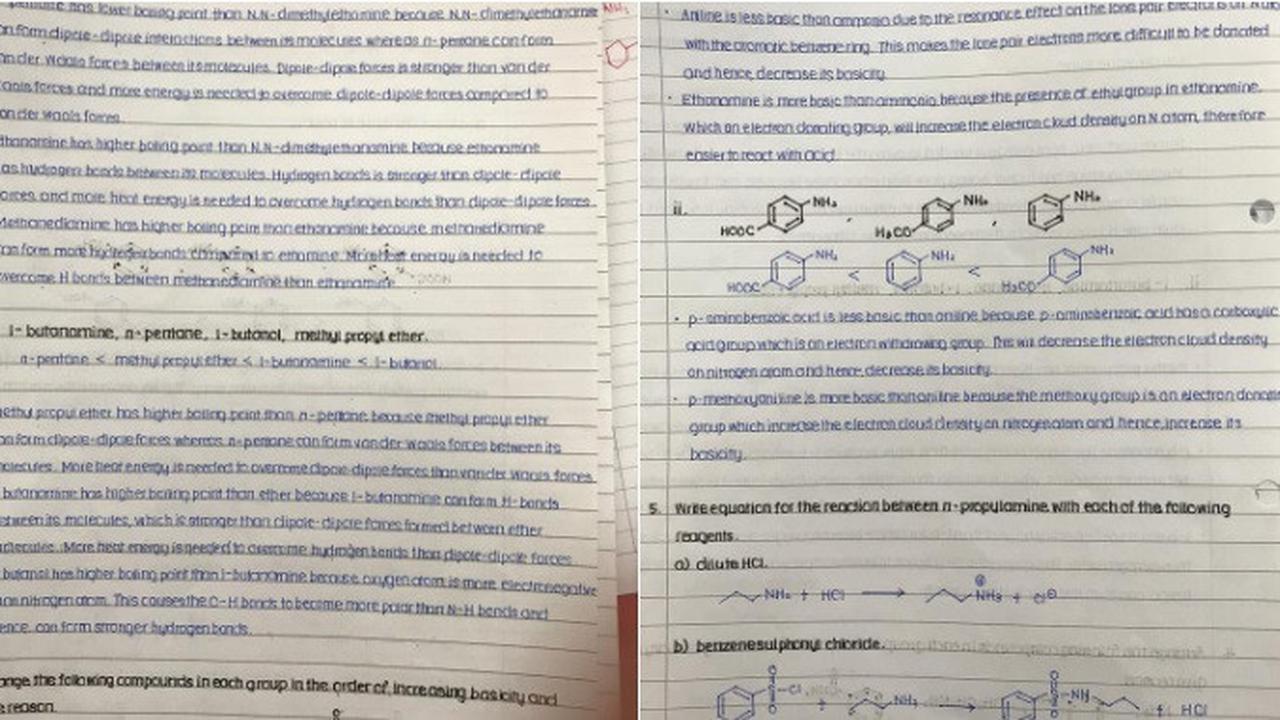 has lower boiling point than N,N-dimethylethanamine because N,N-dimethylethanamine
an form dipole-dipole interactions between its molecules whereas n-pentane can form
an der Waals forces between its molecules. Dipole-dipole forces is stronger than van der
aals forces and more energy is needed to overcome dipole-dipole forces compared to
an der Waals forces.
thanamine has higher boiling point than N,N-dimethylethanamine because ethanamine
as hydrogen bonds between its molecules. Hydrogen bonds is stronger than dipole-dipole
orces, and more heat energy is needed to overcome hydrogen bonds than dipole-dipole forces.
Methanediamine has higher boiling point than ethanamine because methanediamine
an form more hydrogen bonds compared to More heat energy is needed to
vercome H bonds between methanediamine than ethanamine
1-butanamine, n-pentane, 1-butanol, methyl propyl ether.
n-pentane < methyl propyl ether < 1-butanamine < 1-butanol.
ethyl propyl ether has higher boiling point than n-pentane because methyl propyl ether
an form dipole-dipole forces whereas n-pentane can form van der Waals forces between its
olecules. More heat energy is needed to overcome dipole-dipole forces than van der Waals forces.
butanamine has higher boiling point than ether because 1-butanamine can form H-bonds
etween its molecules, which is stronger than dipole-dipole forces formed between ether
olecules. More heat energy is needed to overcome hydrogen bonds than dipole-dipole forces.
butanol has higher boiling point than 1-butanamine because oxygen atom is more electronegative
an nitrogen atom. This causes the O-H bonds to become more polar than N-H bonds and
ence, can form stronger hydrogen bonds.
ange the following compounds in each group in the order of increasing basicity and
reason.
NH₂
• Aniline is less basic than ammonia due to the resonance effect on the lone pair electrons on
with the aromatic benzene ring. This makes the lone pair electrons more difficult to be donated
and hence, decrease its basicity.
• Ethanamine is more basic than ammonia because the presence of ethyl group in ethanamine,
which an electron donating group, will increase the electron cloud density on N atom, therefore
easier to react with acid.
ii. HOOC NH₂ , H₃CO NH₂ , NH₂
HOOC NH₂ < NH₂ < H₃CO NH₂
• p-aminobenzoic acid is less basic than aniline because p-aminobenzoic acid has a carboxylic
acid group which is an electron withdrawing group. This will decrease the electron cloud density
on nitrogen atom and hence, decrease its basicity.
• p-methoxyaniline is more basic than aniline because the methoxy group is an electron donati
group which increase the electron cloud density on nitrogen atom and hence, increase its
basicity.
5. Write equation for the reaction between n-propylamine with each of the following
reagents.
a) dilute HCl.
NH₂ + HCl → NH₃ ⊕ + Cl⊖
b) benzenesulphonyl chloride.
O S O Cl + NH₂ → O S O NH + HCl